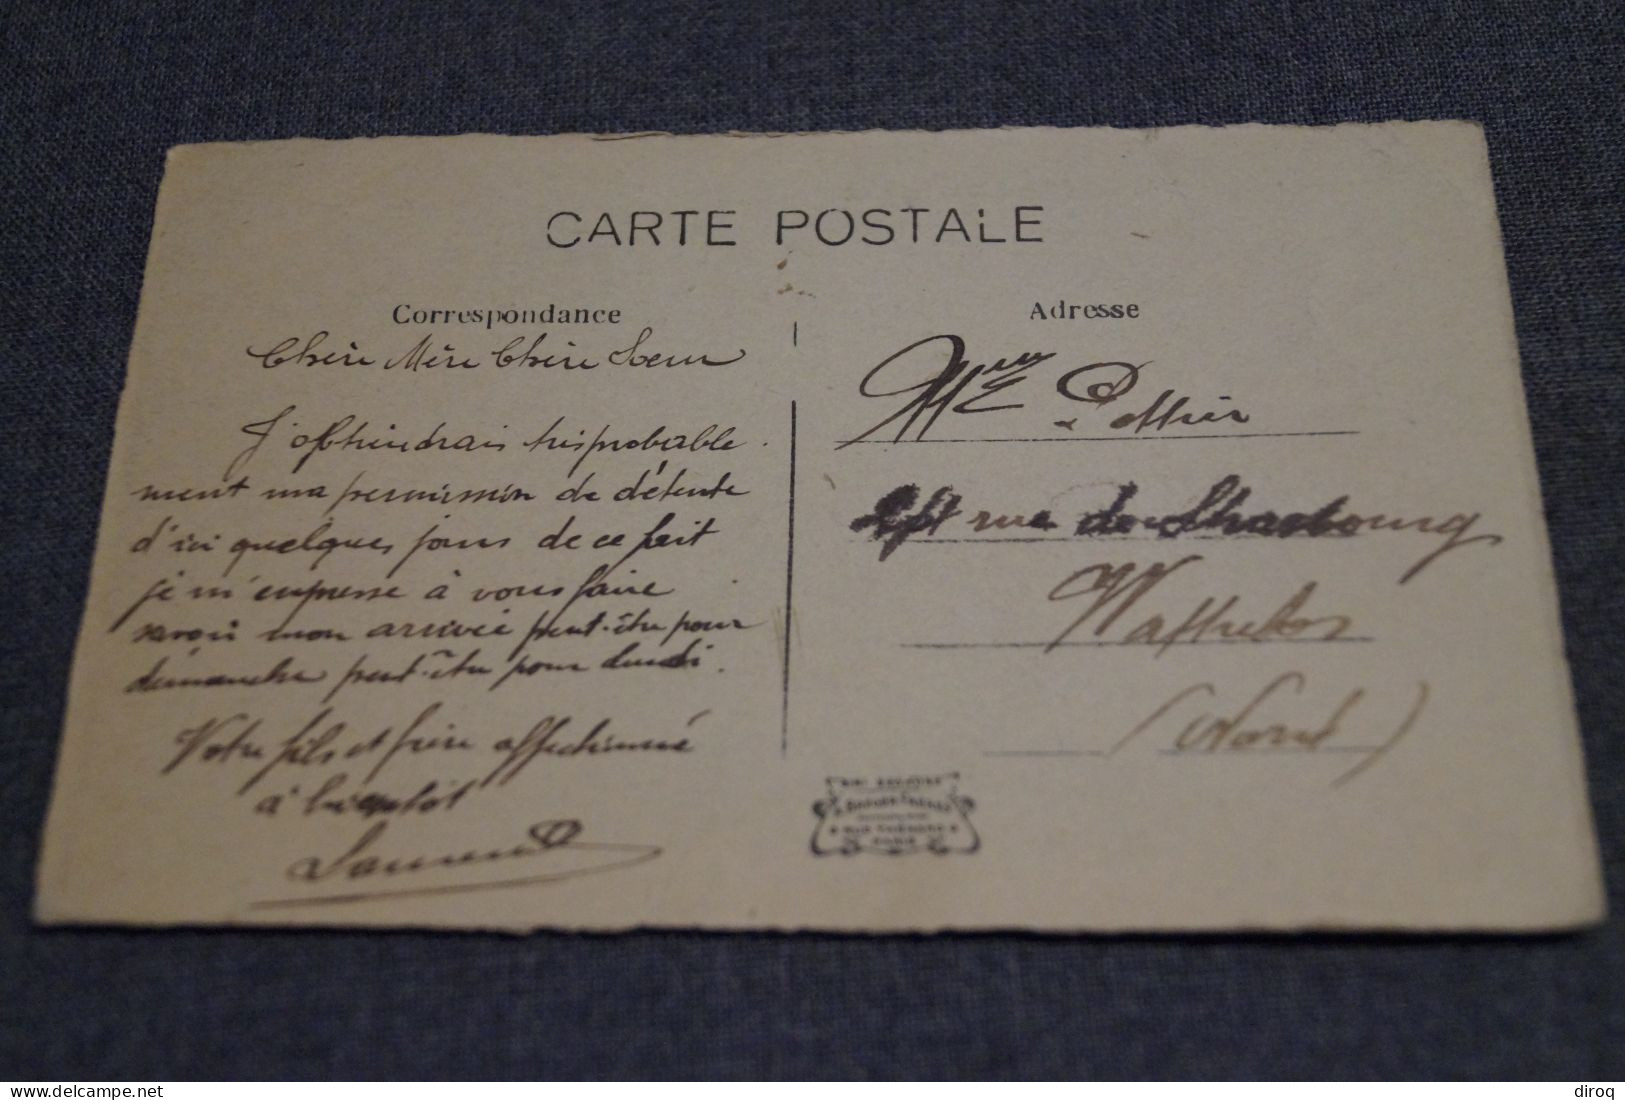 CARTE POSTALE
Correspondance
Chère Mère Chère Soeur
J'obtiendrais très probable
ment ma permission de détente
d'ici quelques jours de ce fait
je m'empresse à vous faire
savoir mon arrivée peut-être pour
dimanche peut-être pour lundi.
Votre fils et frère affectionné
à bientôt
Adresse
Mme
rue de Strasbourg
Wattrelos
(Nord)
PARIS
© delcampe.net
diroq